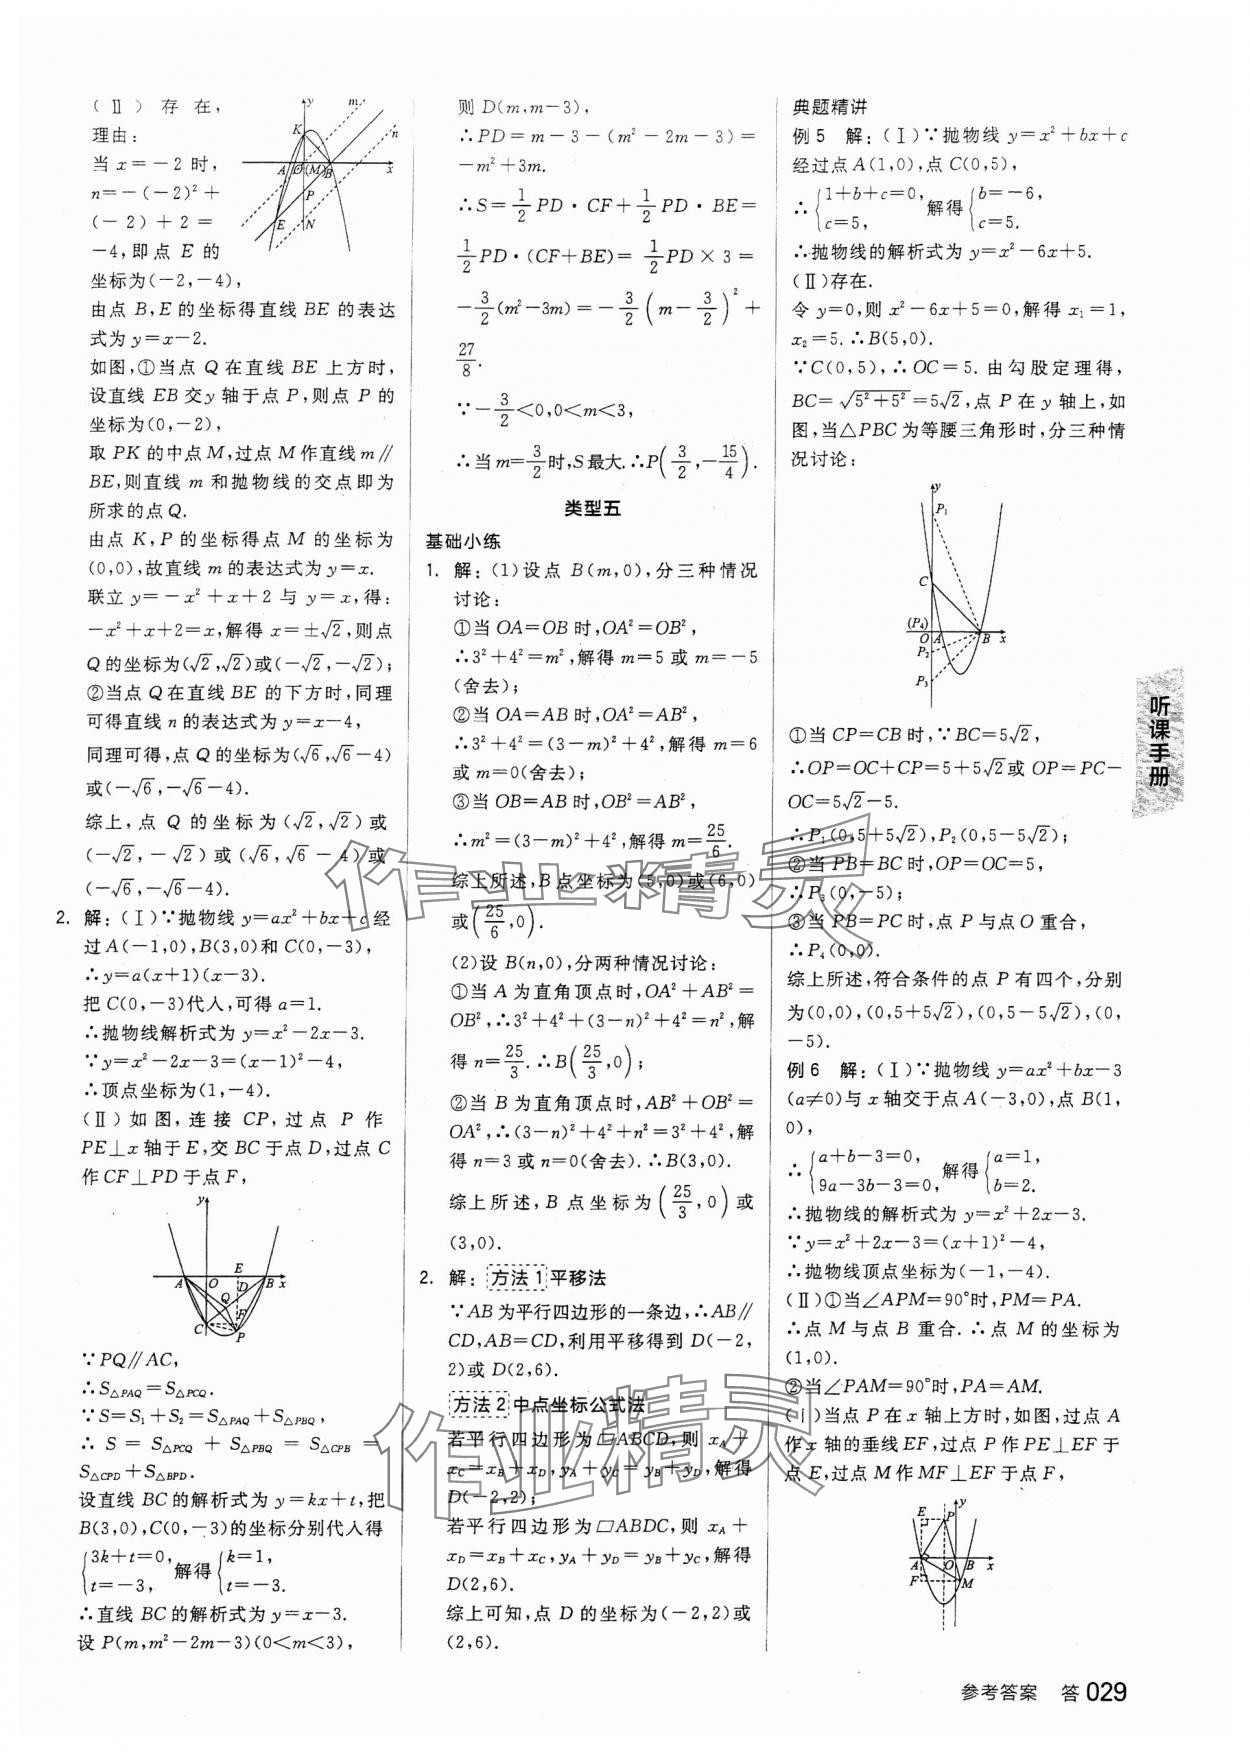 (Ⅱ)存在,
理由:
当x=-2时,
n=-(-2)²+
(-2)+2=
-4,即点E的
坐标为(-2,-4),
由点B,E的坐标得直线BE的表达
式为y=x-2.
如图,①当点Q在直线BE上方时,
设直线EB交y轴于点P,则点P的
坐标为(0,-2),
取PK的中点M,过点M作直线m∥
BE,则直线m和抛物线的交点即为
所求的点Q.
由点K,P的坐标得点M的坐标为
(0,0),故直线m的表达式为y=x.
联立y=-x²+x+2与y=x,得:
-x²+x+2=x,解得x=±√2,则点
Q的坐标为(√2,√2)或(-√2,-√2);
②当点Q在直线BE的下方时,同理
可得直线n的表达式为y=x-4,
同理可得,点Q的坐标为(√6,√6-4)
或(-√6,-√6-4).
综上,点Q的坐标为(√2,√2)或
(-√2,-√2)或(√6,√6-4)或
(-√6,-√6-4).
2. 解:(Ⅰ)∵抛物线y=ax²+bx+c经
过A(-1,0),B(3,0)和C(0,-3),
∴y=a(x+1)(x-3).
把C(0,-3)代入,可得a=1.
∴抛物线解析式为y=x²-2x-3.
∵y=x²-2x-3=(x-1)²-4,
∴顶点坐标为(1,-4).
(Ⅱ)如图,连接CP,过点P作
PE⊥x轴于E,交BC于点D,过点C
作CF⊥PD于点F,
∵PQ∥AC,
∴S△PAQ=S△PCQ.
∵S=S₁+S₂=S△PAQ+S△PBQ,
∴S=S△PCQ+S△PBQ=S△CPB=
S△CPD+S△BPD.
设直线BC的解析式为y=kx+t,把
B(3,0),C(0,-3)的坐标分别代入得
{3k+t=0, t=-3, 解得{k=1, t=-3.
∴直线BC的解析式为y=x-3.
设P(m,m²-2m-3)(0<m<3),
则D(m,m-3),
∴PD=m-3-(m²-2m-3)=
-m²+3m.
∴S=1/2 PD·CF+1/2 PD·BE=
1/2 PD·(CF+BE)=1/2 PD×3=
-3/2(m²-3m)=-3/2(m-3/2)²+
27/8.
∵-3/2<0,0<m<3,
∴当m=3/2时,S最大.∴P(3/2,-15/4).
类型五
基础小练
1. 解:(1)设点B(m,0),分三种情况
讨论:
①当OA=OB时,OA²=OB²,
∴3²+4²=m²,解得m=5或m=-5
(舍去);
②当OA=AB时,OA²=AB²,
∴3²+4²=(3-m)²+4²,解得m=6
或m=0(舍去);
③当OB=AB时,OB²=AB²,
∴m²=(3-m)²+4²,解得m=25/6.
综上所述,B点坐标为(5,0)或(6,0)
或(25/6,0).
(2)设B(n,0),分两种情况讨论:
①当A为直角顶点时,OA²+AB²=
OB²,∴3²+4²+(3-n)²+4²=n²,解
得n=25/3.∴B(25/3,0);
②当B为直角顶点时,AB²+OB²=
OA²,∴(3-n)²+4²+n²=3²+4²,解
得n=3或n=0(舍去).∴B(3,0).
综上所述,B点坐标为(25/3,0)或
(3,0).
2. 解:方法1平移法
∵AB为平行四边形的一条边,∴AB∥
CD,AB=CD,利用平移得到D(-2,
2)或D(2,6).
方法2中点坐标公式法
若平行四边形为▱ABCD,则x_A+
x_C=x_B+x_D,y_A+y_C=y_B+y_D,解得
D(-2,2);
若平行四边形为▱ABDC,则x_A+
x_D=x_B+x_C,y_A+y_D=y_B+y_C,解得
D(2,6).
综上可知,点D的坐标为(-2,2)或
(2,6).
典题精讲
例5 解:(Ⅰ)∵抛物线y=x²+bx+c
经过点A(1,0),点C(0,5),
∴{1+b+c=0, c=5, 解得{b=-6, c=5.
∴抛物线的解析式为y=x²-6x+5.
(Ⅱ)存在.
令y=0,则x²-6x+5=0,解得x₁=1,
x₂=5.∴B(5,0).
∵C(0,5),∴OC=5.由勾股定理得,
BC=√(5²+5²)=5√2,点P在y轴上,如
图,当△PBC为等腰三角形时,分三种情
况讨论:
①当CP=CB时,∵BC=5√2,
∴OP=OC+CP=5+5√2或OP=PC-
OC=5√2-5.
∴P₁(0,5+5√2),P₂(0,5-5√2);
②当PB=BC时,OP=OC=5,
∴P₃(0,-5);
③当PB=PC时,点P与点O重合,
∴P₄(0,0).
综上所述,符合条件的点P有四个,分别
为(0,0),(0,5+5√2),(0,5-5√2),(0,
-5).
例6 解:(Ⅰ)∵抛物线y=ax²+bx-3
(a≠0)与x轴交于点A(-3,0),点B(1,
0),
∴{a+b-3=0, 9a-3b-3=0, 解得{a=1, b=2.
∴抛物线的解析式为y=x²+2x-3.
∵y=x²+2x-3=(x+1)²-4,
∴抛物线顶点坐标为(-1,-4).
(Ⅱ)①当∠APM=90°时,PM=PA.
∴点M与点B重合.∴点M的坐标为
(1,0).
②当∠PAM=90°时,PA=AM.
(ⅰ)当点P在x轴上方时,如图,过点A
作x轴的垂线EF,过点P作PE⊥EF于
点E,过点M作MF⊥EF于点F,
听课手册
参考答案 答029
作业精灵
作业精灵